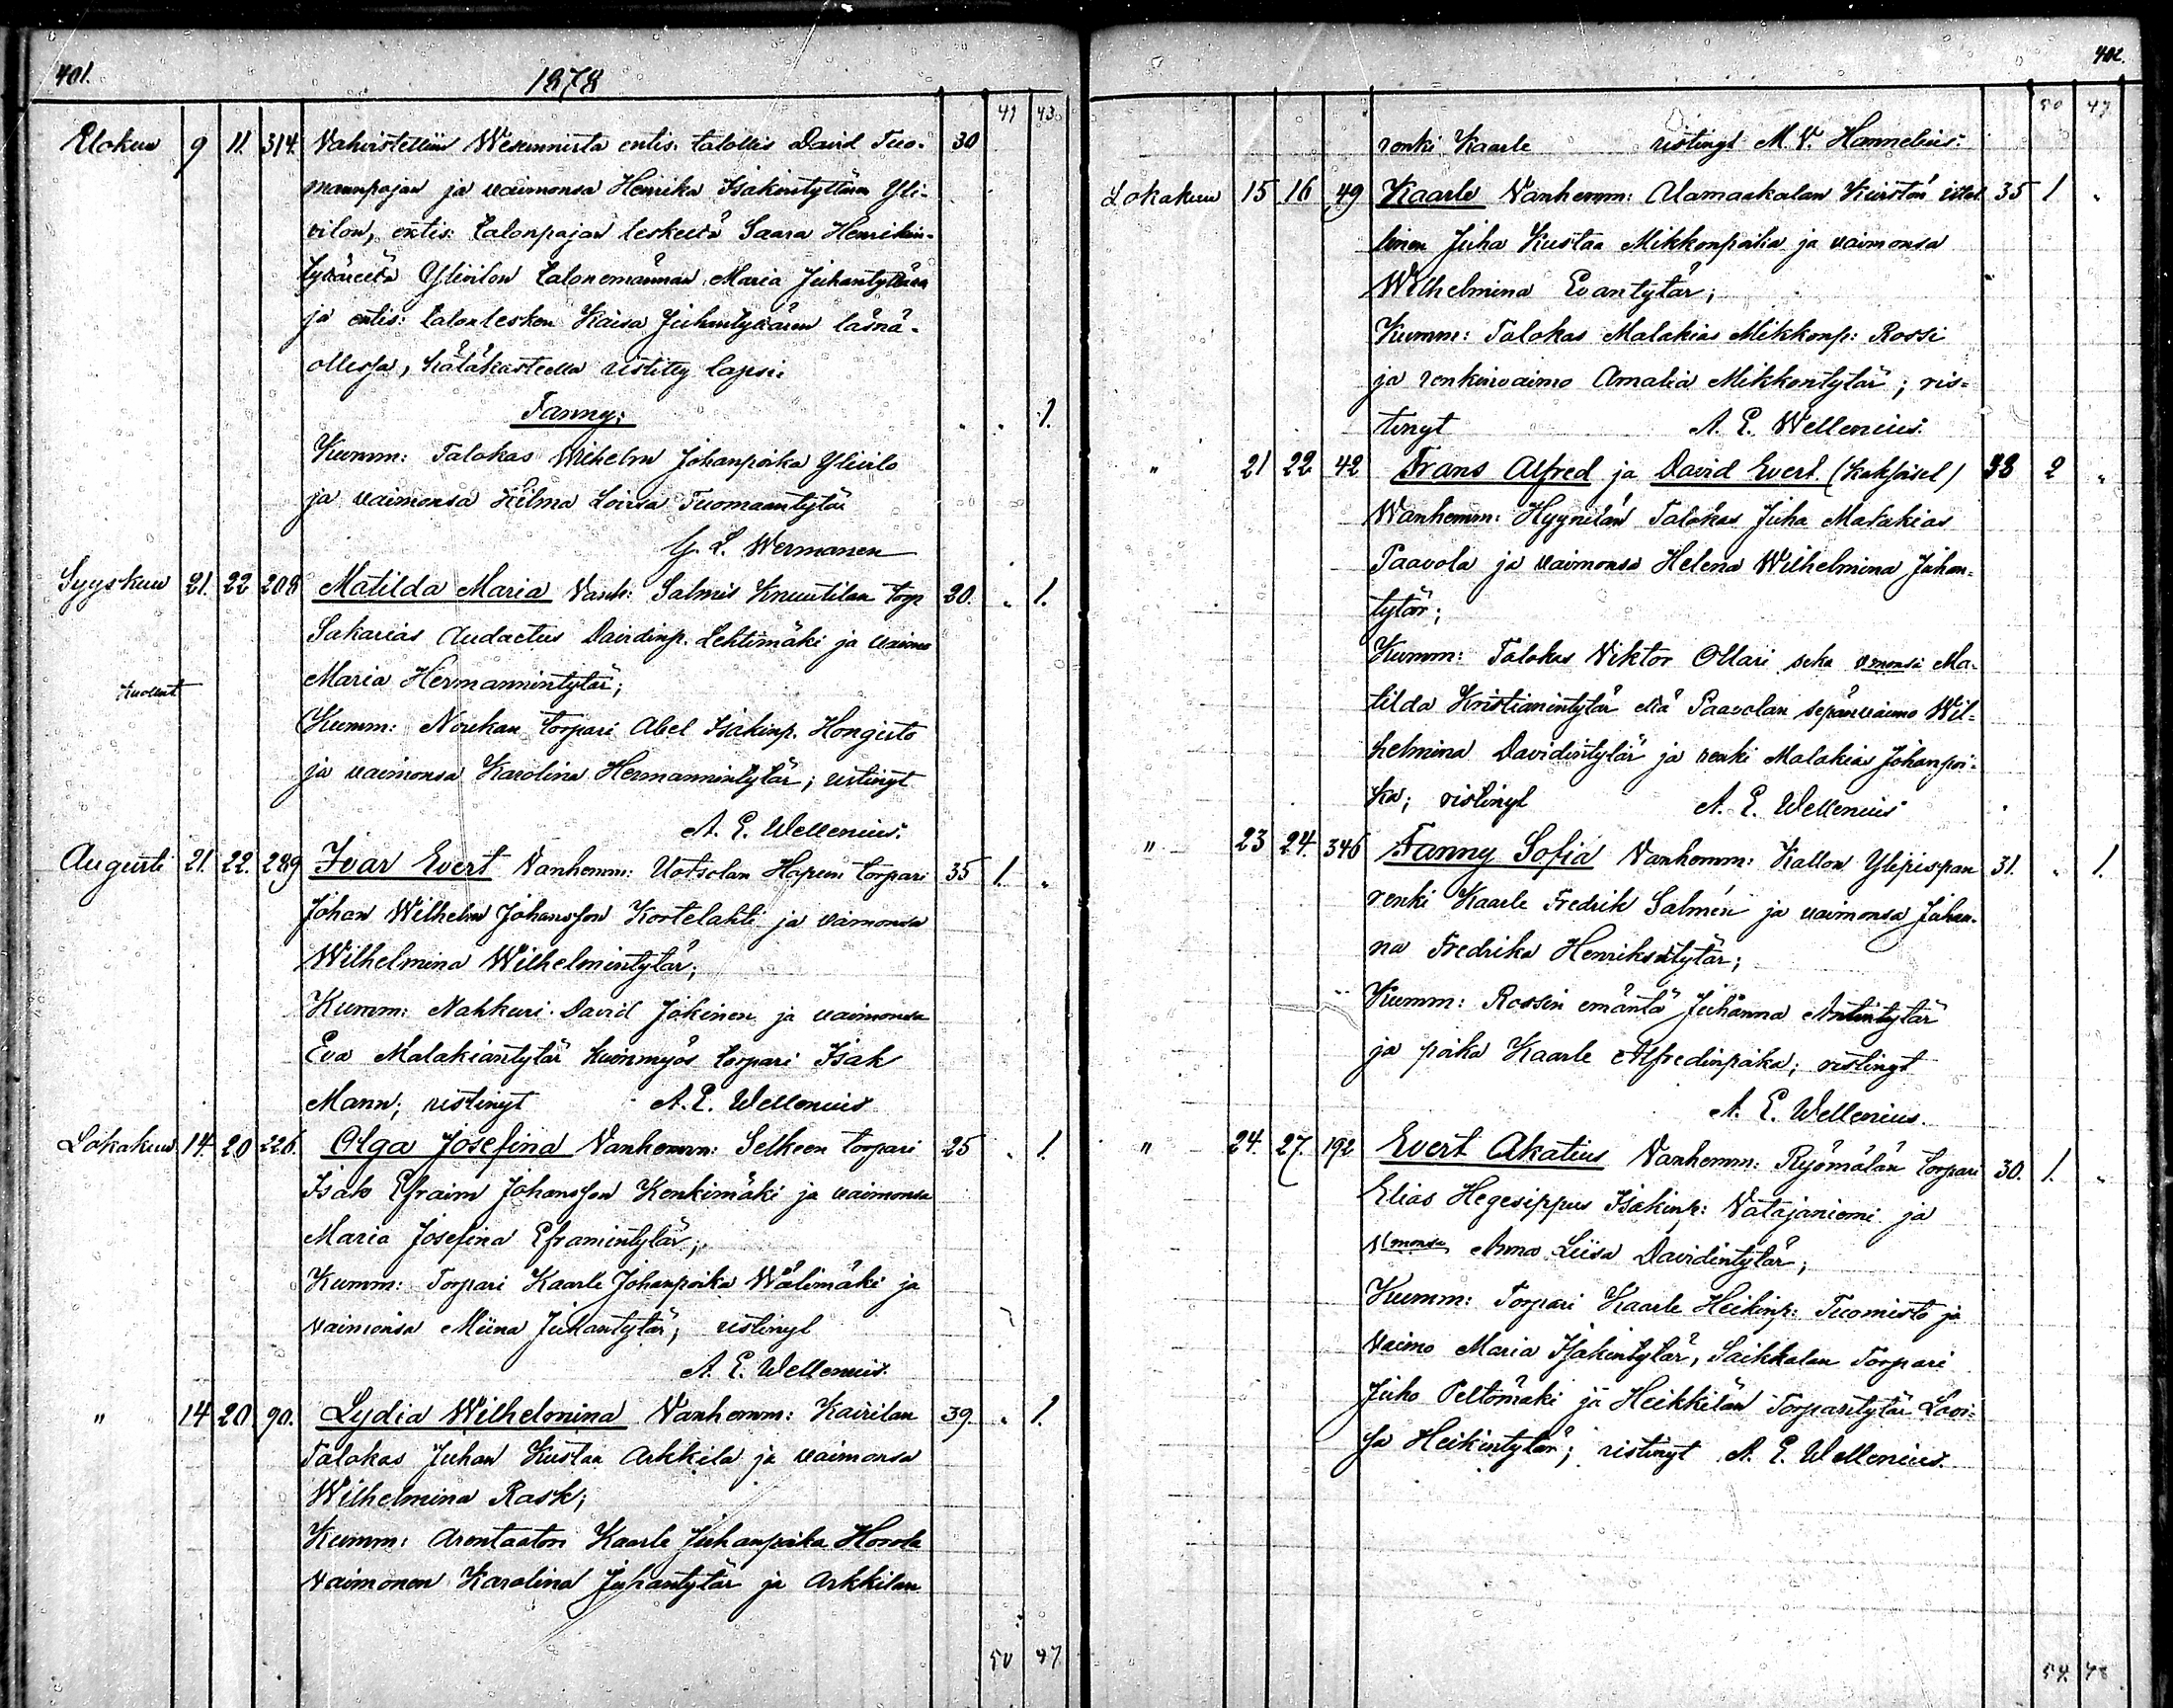 401.
1878
41 43
Elokuu 9 11. 314. Vahvistettiin Wesunnista entis. talollis David Tuo- 30
maanpojan ja vaimonsa Henrika Isakintyttären Yli-
vilon, entis: talonpojan leskeltä Saara Henrikin-
tyttäreltä Ylivilon talonemännän, Maria Juhantyttären
ja entis: talonlesken Kaisa Juhantyttären läsnä-
ollessa, hätäkasteella ristitty lapsi:
Fanny; " " 1.
Kumm: Talokas Wilhelm Johanpoika Ylivilo
ja vaimonsa Hilma Lovisa Tuomaantytär
G. L. Wermanen
Syyskuu 21. 22 208 Matilda Maria Vanh: Salmis Knuutilan torp 20. " 1.
Sakarias Audactus Davidinp. Lehtimäki ja vaimo
Maria Hermannintytär;
Kuollut
Kumm: Noukan torpari Abel Isakinp. Hongisto
ja vaimonsa Karolina Hermannintytär; ristinyt
A. E. Wellenius.
Augusti 21. 22. 289 Ivar Evert Vanhemm: Uotsolan Hapun torpari 35 1. "
Johan Wilhelm Johansson Kortelahti ja vaimonsa
Wilhelmina Wilhelmintytär;
Kumm: Nahkuri David Jokinen ja vaimonsa
Eva Malakiantytär kuinmyös torpari Isak
Mann; ristinyt A. E. Wellenius
Lokakuu 14. 20 226. Olga Josefina Vanhemm: Selkeen torpari 25 " 1.
Isak Efraim Johansson Kenkimäki ja vaimonsa
Maria Josefina Eframintytär;
Kumm: Torpari Kaarle Johanpoika Wälimäki ja
vaimonsa Miina Juhantytär; ristinyt
A. E. Wellenius.
" 14 20 90. Lydia Wilhelmina Vanhemm: Kairilan 39. " 1.
Talokas Juhan Kustaa Arkkila ja vaimonsa
Wilhelmina Rask;
Kumm: Arentaator Kaarle Juhanpoika
vaimonen Karolina Juhantytär ja Arkkilan
50 47
402.
50 47
renki Kaarle ristinyt M. V. Hannelius.
Lokakuu 15 16 49 Kaarle Vanhemm: Alamaakalan Kurstan 35 1 "
linen Juha Kustaa Mikkonpoika ja vaimonsa
Wilhelmina Evantytär;
Kumm: Talokas Malakias Mikkonp: Rossi
ja renkinvaimo Amalia Mikkontytär; ris-
tinyt A. E. Wellenius.
" 21 22 42 Frans Alfred ja David Evert. (kaksoiset) 38 2 "
Wanhemm: Hyynilän Talokas Juha Malakias
Paavola ja vaimonsa Helena Wilhelmina Juhan-
tytär;
Kumm: Talokas Viktor Ollari sekä vmonsa Ma-
tilda Kristianintytär että Paavolan sepänvaimo Wil-
helmina Davidintytär ja renki Malakias Johanpoi-
ka; ristinyt A. E. Wellenius
" 23 24. 346 Fanny Sofia Vanhemm: Kallon Ylipispan 31. " 1.
renki Kaarle Fredrik Salmén ja vaimonsa Johan-
na Fredrika Henriksintytär;
Kumm: Rossin emäntä Juhanna Antintytär
ja poika Kaarle Alfredinpoika; ristinyt
A. E. Wellenius.
" 24. 27. 192 Evert Akatius Vanhemm: Ryömälän torpari 30. 1. "
Elias Hegesippus Isakinp: Vatajaniemi ja
Vmonsa Anna Liisa Davidintytär;
Kumm: Torpari Kaarle Heikinp: Tuomisto ja
Vaimo Maria Isakintytär, Saikkalan Torpari
Juho Peltomäki ja Heikkilän Torparitytär Lovi-
sa Heikintytär; ristinyt A. E. Wellenius.
54 48